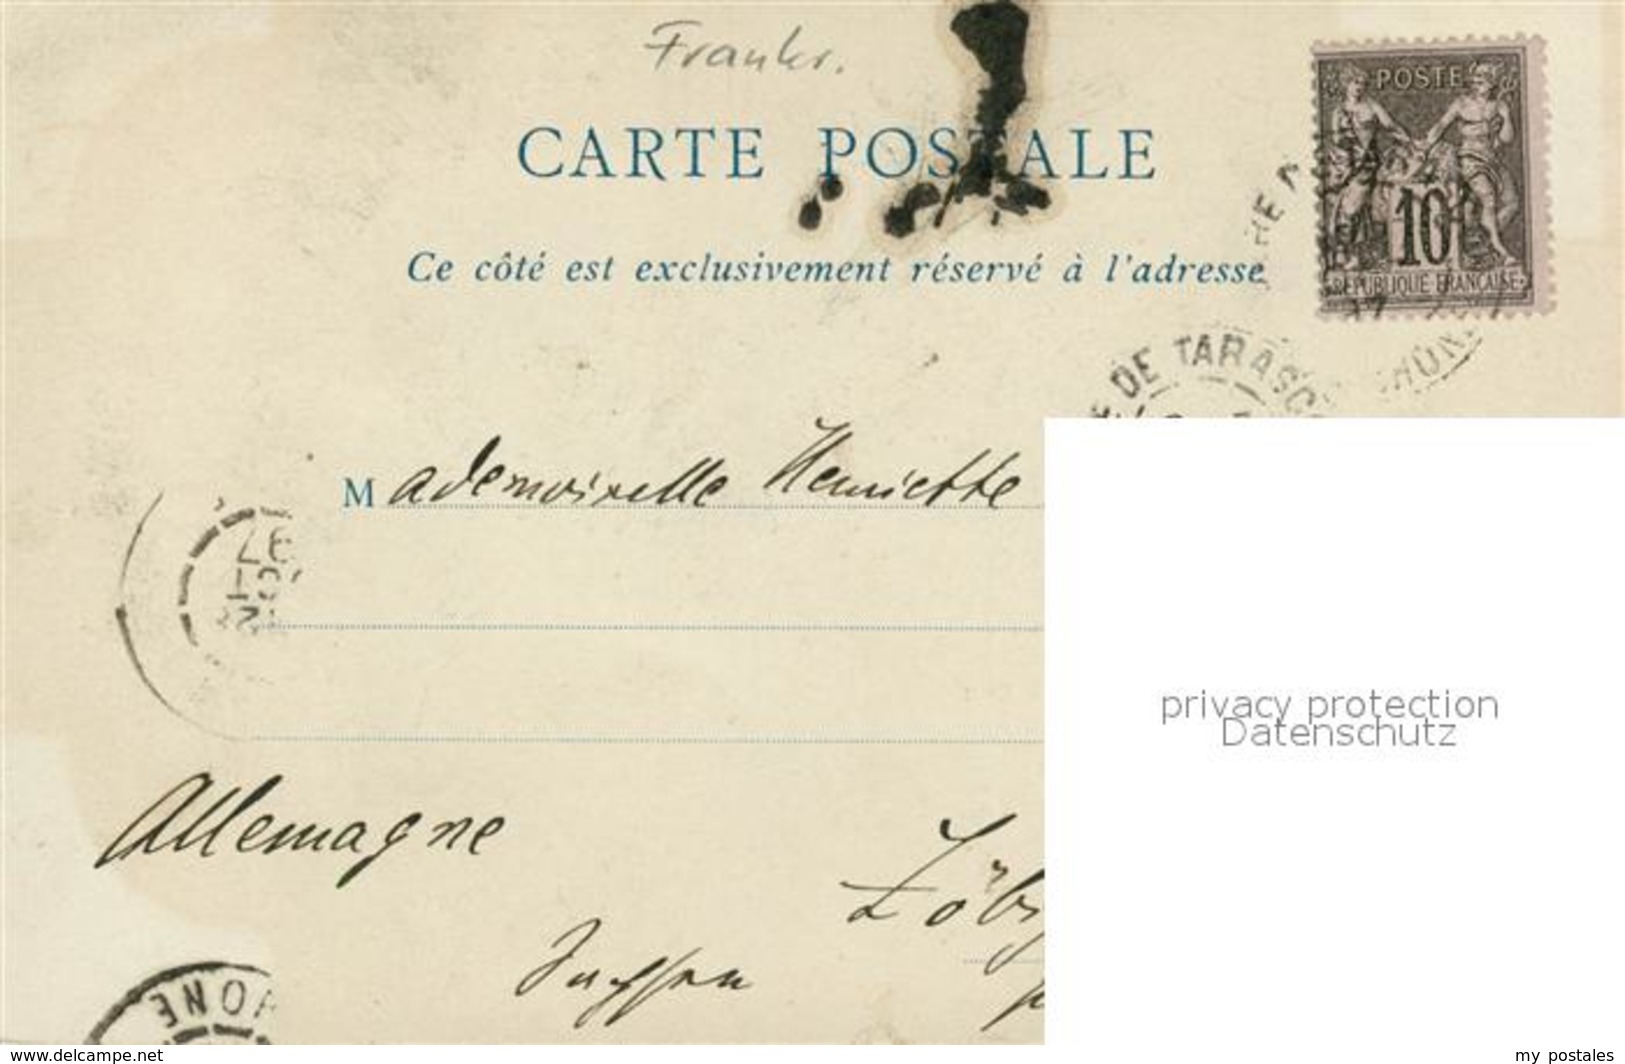 Frankr.
CARTE POSTALE
POSTE
10
REPUBLIQUE FRANÇAISE
Ce côté est exclusivement réservé à l'adresse
DE TARASC
Mademoiselle Henriette
privacy protection
Datenschutz
Allemagne
HONE
www.delcampe.net
my postales